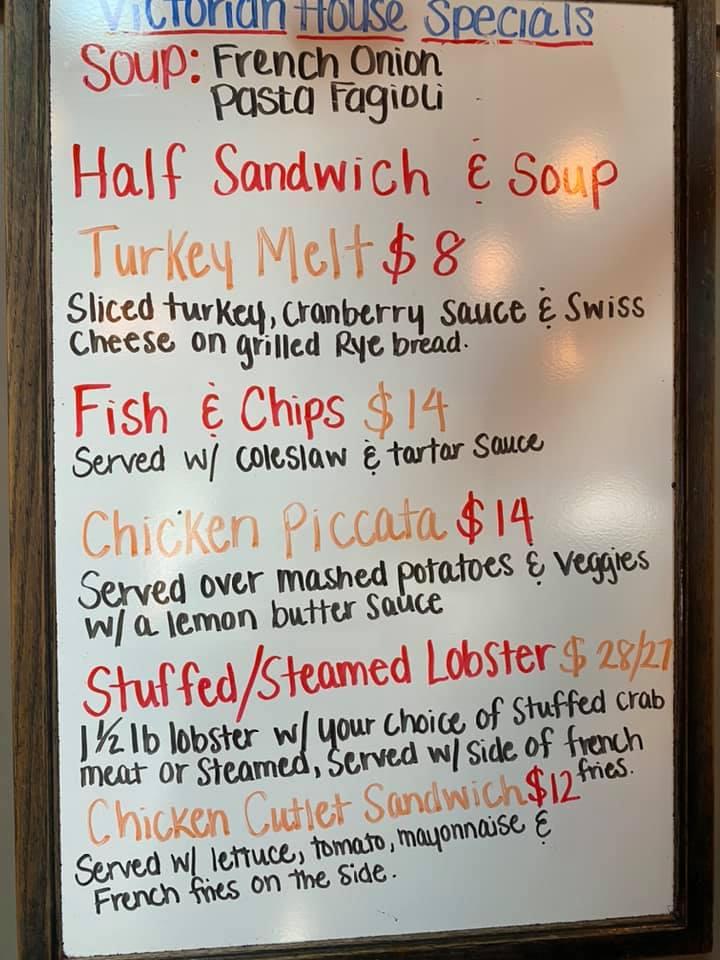 Victorian House Specials
Soup: French Onion
Pasta Fagioli
Half Sandwich & Soup
Turkey Melt $8
Sliced turkey, cranberry sauce & Swiss
Cheese on grilled Rye bread.
Fish & Chips $14
Served w/ coleslaw & tartar sauce
Chicken Piccata $14
Served over mashed potatoes & veggies
w/ a lemon butter sauce
Stuffed/Steamed Lobster $28/27
1 1/2 lb lobster w/ your choice of stuffed crab
meat or steamed, served w/ side of french
fries.
Chicken Cutlet Sandwich $12
Served w/ lettuce, tomato, mayonnaise &
French fries on the side.